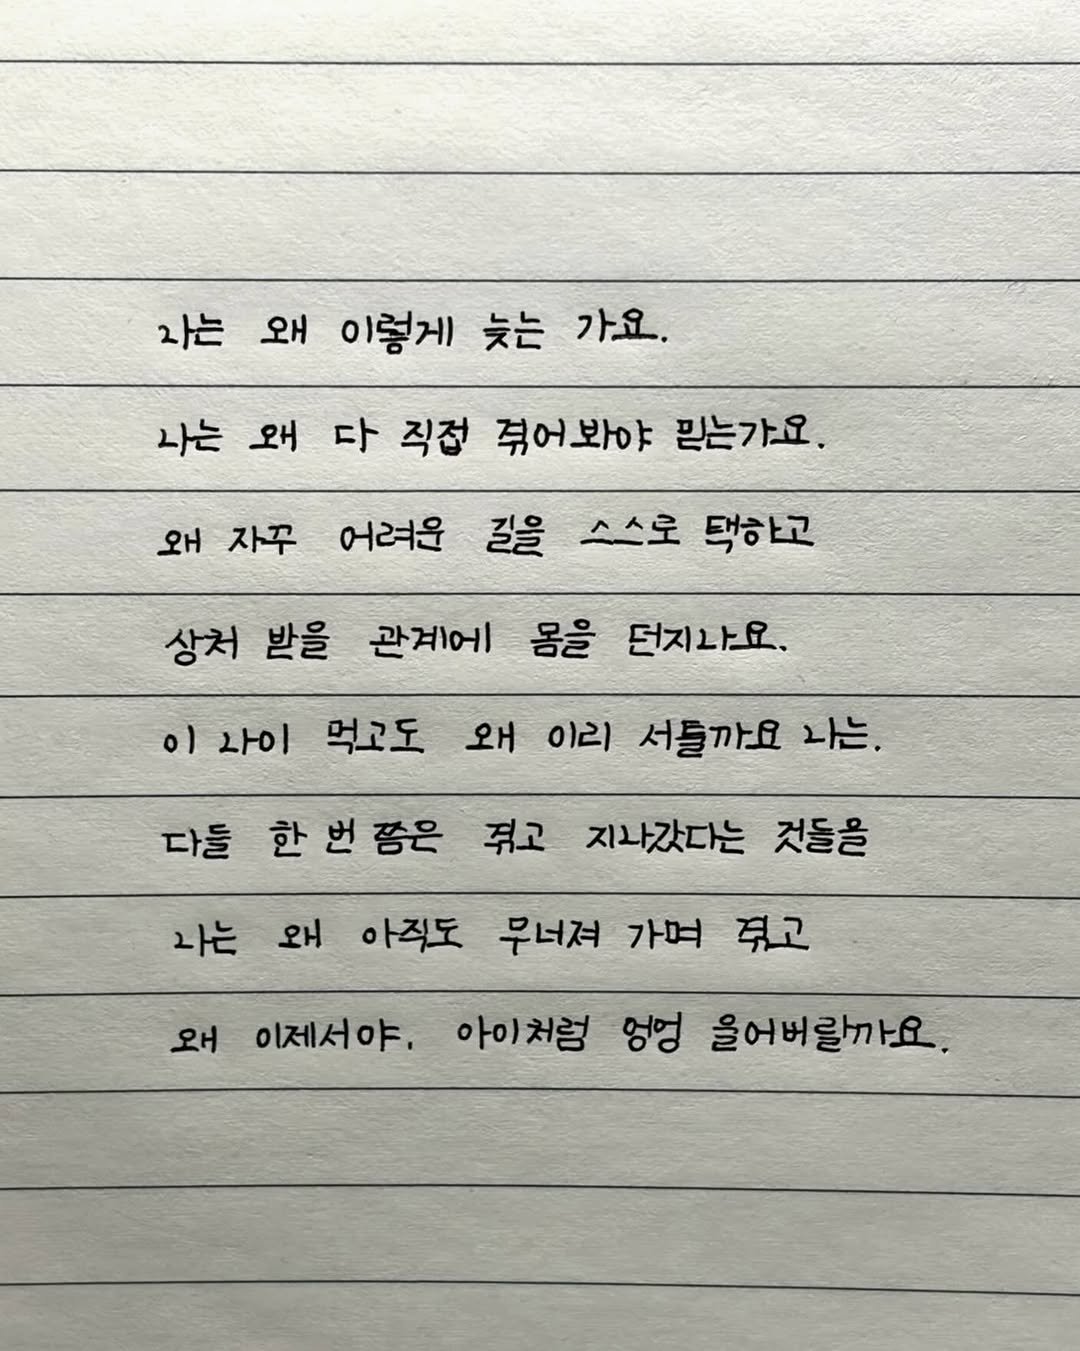 나는 왜 이렇게 늦는 가요.
나는 왜 다 직접 겪어봐야 믿는가요.
왜 자꾸 어려운 길을 스스로 택하고
상처 받을 관계에 몸을 던지나요.
이 나이 먹고도 왜 이리 서툴까요 나는.
다들 한 번 쯤은 겪고 지나갔다는 것들을
나는 왜 아직도 무너져 가며 겪고
왜 이제서야. 아이처럼 엉엉 울어버릴까요.